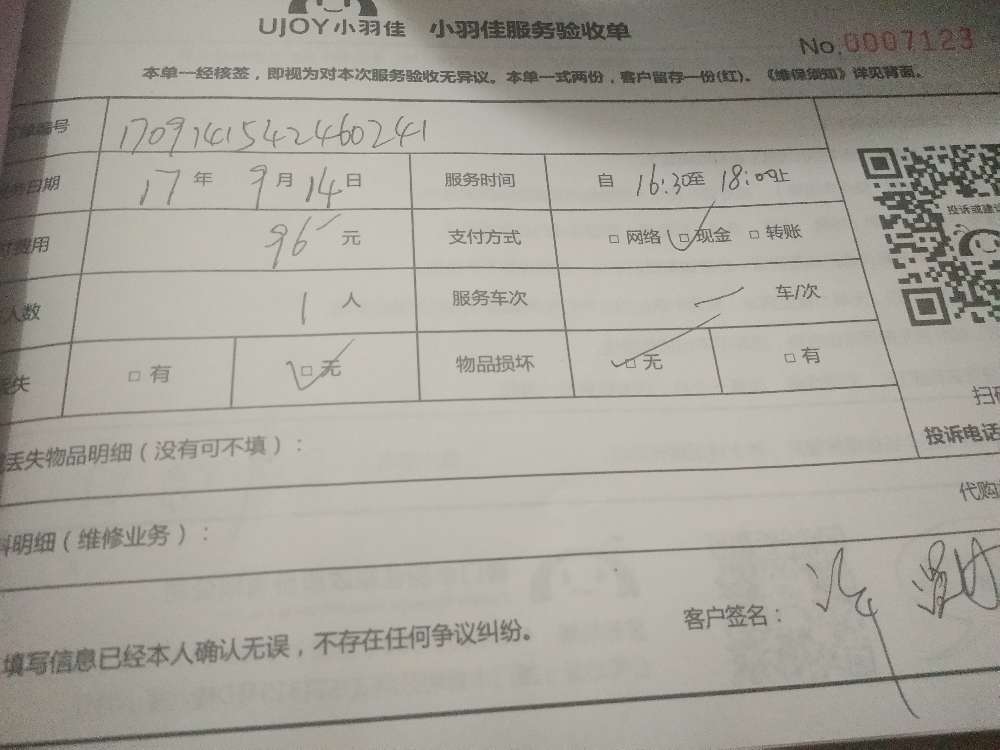 UJOY小羽佳 小羽佳服务验收单
No.0007123
本单一经核签，即视为对本次服务验收无异议。本单一式两份，客户留存一份(红)。《维保须知》详见背面。
编号 1709141542460241
日期 17年 9月14日 服务时间 自 16:30至 18:00止
费用 96元 支付方式 □网络 □现金 □转账
投诉或建议
人数 1人 服务车次 车/次
失 □有 □无 物品损坏 □无 □有
扫码
丢失物品明细（没有可不填）：
投诉电话
代购
料明细（维修业务）：
填写信息已经本人确认无误，不存在任何争议纠纷。 客户签名：